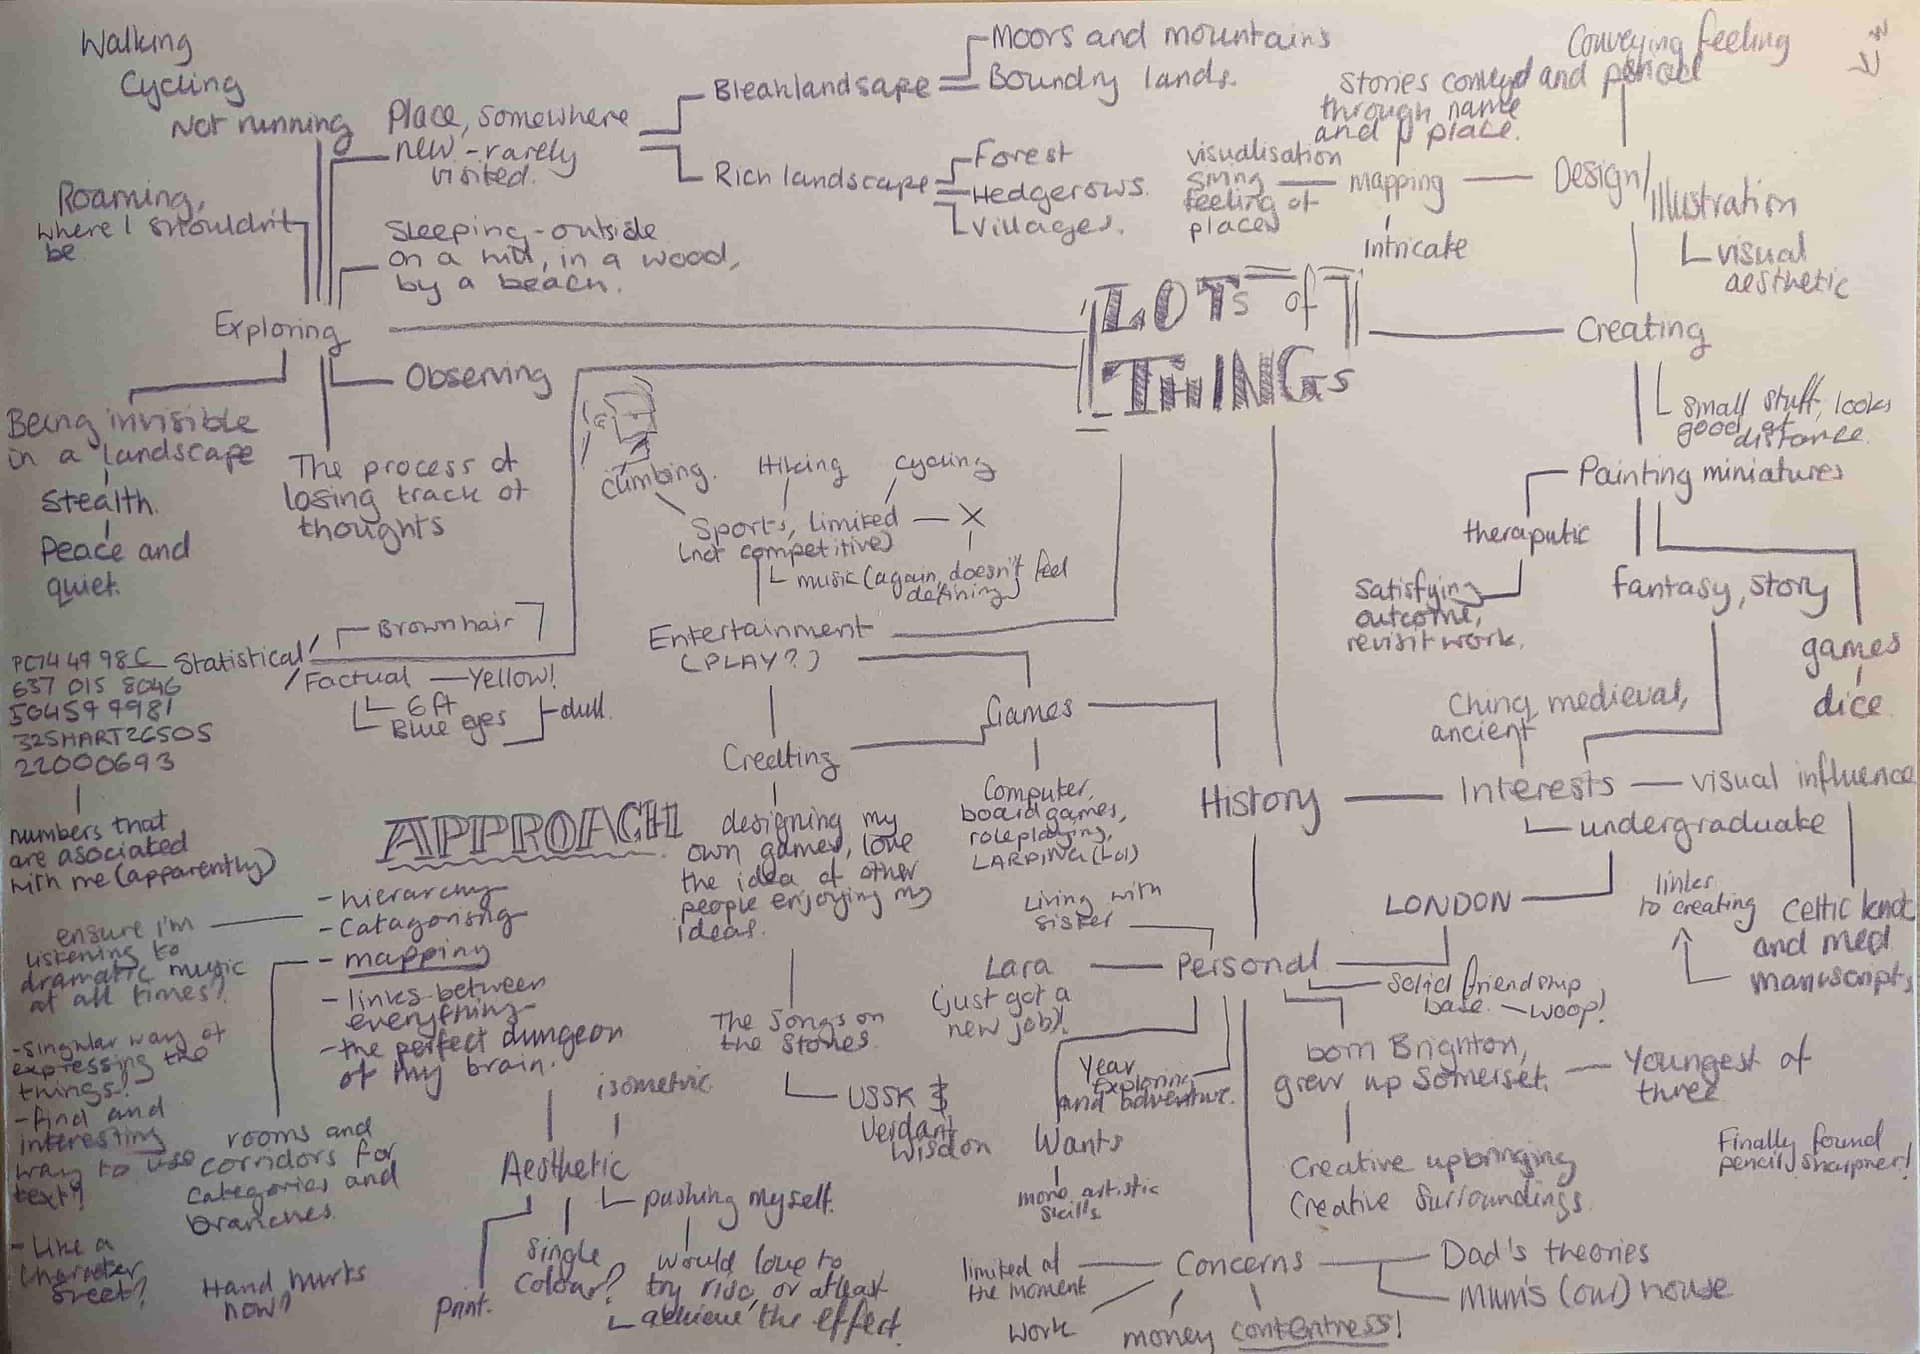 Walking
Cycling
Not running
Roaming,
where I shouldn't
be
Place, somewhere
new - rarely
visited.
Sleeping - outside
on a hill, in a wood,
by a beach.
Bleaklandsape
Moors and mountains
Boundry lands.
Rich landscape
Forest
Hedgerows.
Villages.
Exploring
Observing
Being invisible
in a landscape
Stealth.
Peace and
quiet.
The process of
losing track of
thoughts
LOTs of
THINGs
Conveying feeling
and
Stories conveyd
through name
and place.
visualisation
feeling of
places
mapping
intricate
Design/
Illustration
visual
aesthetic
Creating
Small stuff, looks
good at
distance.
Painting miniatures
theraputic
Satisfying
outcome,
revisit work.
fantasy, story
games
dice
climbing.
Hiking
cycling
Sports, limited — X
(not competitive)
music (again, doesn't feel
defining)
Entertainment
(PLAY?)
Games
Creating
Computer,
boardgames,
roleplaying,
LARPING (Lol)
designing my
own games, love
the idea of other
people enjoying my
ideas.
The Songs on
the Stones
USSK &
Verdant
Wisdon
Statistical/
/Factual
Brown hair
Yellow!
6ft
Blue eyes
dull.
PC74 49 98C
637 015 8046
504599981
32SMART26505
22000693
numbers that
are asociated
with me (apparently)
APPROACH
- hierarchy
- Catagorising
- mapping
- links between
everything
- the perfect dungeon
of my brain.
ensure I'm
listening to
dramatic music
at all times?
- Singular way of
expressing the
things?
- find and
interesting
way to use
text?
- Like a
Character
Sheet?
rooms and
corridors for
categories and
branches.
Hand hurts
now?
isometric
Aesthetic
pushing myself.
print.
Single
Colour?
Would love to
try riso, or atleast
achieve the effect.
History
Interests
China, medieval,
ancient
visual influence
undergraduate
LONDON
links
to creating
Celtic knot
and med
manuscripts
Personal
Living with
Sister
Lara
(just got a
new job)!
Solid friendship
base. - woop!
Year
exploring
and adventure.
Wants
more artistic
skills.
born Brighton,
grew up Somerset.
Youngest of
three
Creative upbringing
Creative Surroundings
Finally found
pencil sharpner!
Concerns
limited at
the moment
Work
money
contentness!
Dad's theories
Mum's (our) house